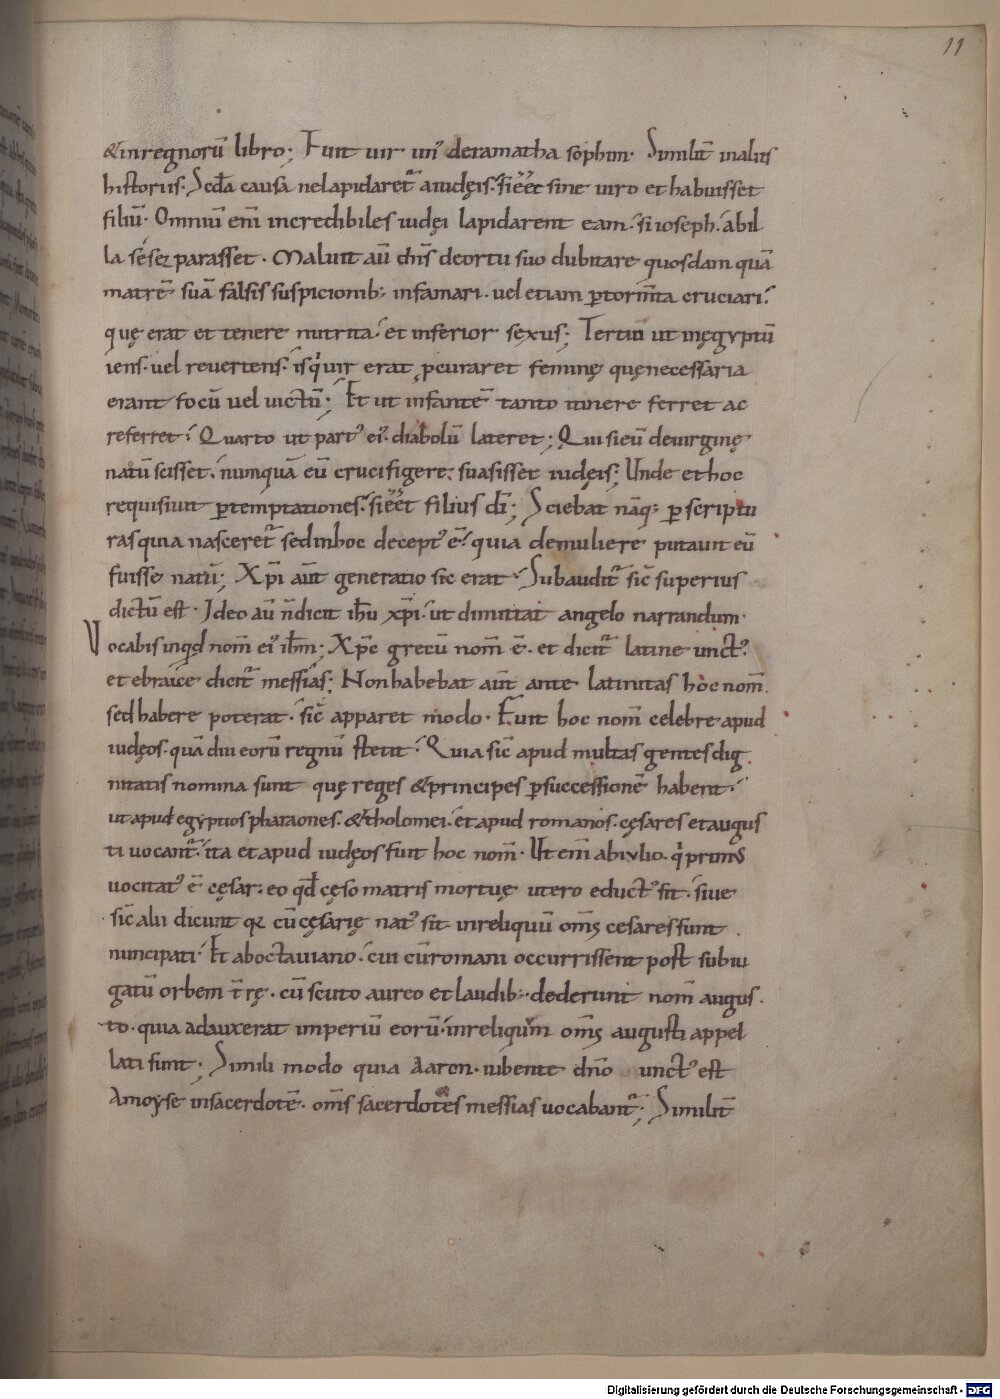 11
& in regnorū libro; Fuit uir un᾽ de ramatha sophim. Similit̄ in aliis
historiis. Scd̄a causa ne lapidaret᷑ a iudęis. si eēt sine uiro et habuisset
filiū. Omnium eni͞ incredibiles iudęi lapidarent eam. si ioseph. ab il
la sese separasset. Maluit aū dn̄s de ortu suo dubitare quosdam quā
matrē suā falsis suspicionib; infamari. uel etiam p̱ torm̄ta cruciari.
quę erat et tenere nutrita. et inferior sexus; Tertiū ut in ęgyptū
iens. uel reuertens. is qͥ uir erat ꝓcuraret feminę quę necessaria
erant focū uel uictū; Et ut infantē tanto itinere ferret ac
referret. Quarto ut part᾽ ei᾽ diabolū lateret; Qui si eū de uirginę
natū scisset. numquā eū crucifigere suasisset iudęis; Unde et hoc
requisiuit p̱ temptationes. si eēt filius dī; Sciebat nāq; p̱ scriptu
ras quia nasceret᷑ sed in hoc decept᾽ ē. quia de muliere putauit eū
fuisse natū; Xp̄i aūt generatio sic erat. Subaudit᷑ sic̄ superius
dictū est. Ideo aū n̄ dicit ih̄u xp̄i. ut dimittat angelo narrandum.
Vocabis inqd nom̄ ei᾽ ih̄m; Xp̄c grecū nom̄ ē. et dicit᷑ latine unct᾽.
et ebraice dicit᷑ messias; Non habebat aūt ante latinitas hoc nom̄.
sed habere poterat. sic̄ apparet modo. Fuit hoc nom̄ celebre apud
iudęos. quā diu eorū regnū stetit. Quia sic̄ apud multas gentes dig
nitatis nomina sunt quę reges & principes p̱ successionē habent.
ut apud egyptios pharaones. & tholomei. et apud romanos. cęsares et augus
ti uocant᷑. ita et apud iudęos fuit hoc nom̄. Ut em̄ ab iulio. qͥ primus
uocitat᾽ ē cęsar. eo qd̄ cęso matris mortuę utero educt᾽ sit. siue
sic̄ alii dicunt qꝛ cū cęsarię nat᾽ sit. in reliquū om̄s cesares sunt
nuncipati. Et ab octauiano. cui cū romani occurrissent post subiu
gatū orbem t̄rę. cū scuto aureo et laudib;. dederunt nom̄ augus
to. quia adauxerat imperiū eorū. in reliquum om̄s augusti appel
lati sunt; Simili modo quia Aaron. iubente dn̄o unct᾽ est
A moyse in sacerdotē. om̄s sacerdotes messias uocabant᷑; Similit̄
Digitalisierung gefördert durch die Deutsche Forschungsgemeinschaft - DFG